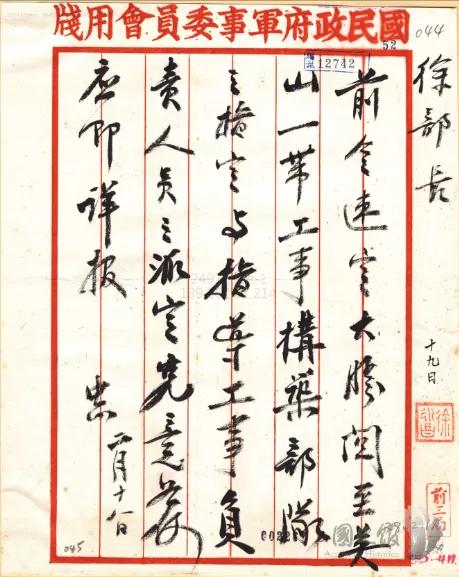 國民政府軍事委員會用牋
044
52
12742
徐部長
前令速定大勝關至英
山一帶工事構築部隊
之指定與指導工事負
責人員之派定究竟如何
應即詳報
月十八日
十九日
徐永昌
前三
045